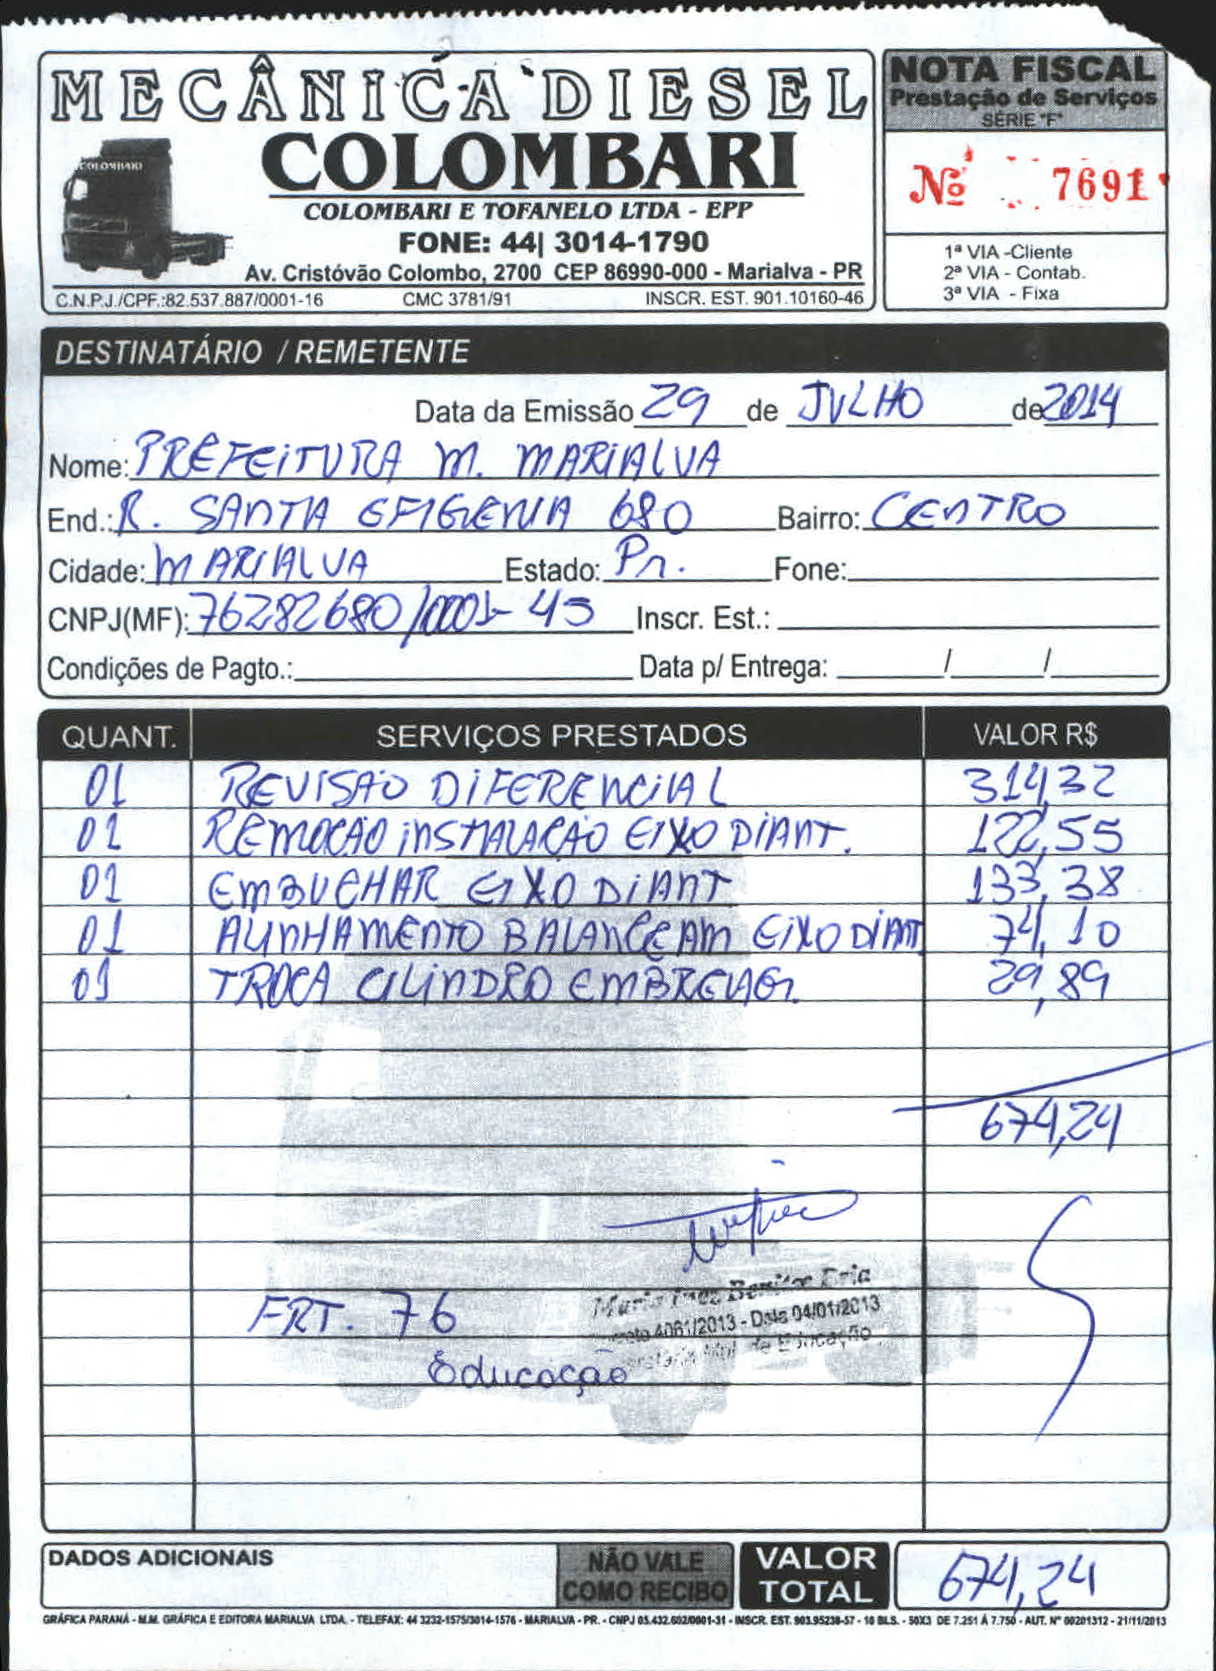 MECÂNICA DIESEL
COLOMBARI
COLOMBARI
COLOMBARI E TOFANELO LTDA - EPP
FONE: 44| 3014-1790
Av. Cristóvão Colombo, 2700 CEP 86990-000 - Marialva - PR
C.N.P.J./CPF.:82.537.887/0001-16 CMC 3781/91 INSCR. EST. 901.10160-46
NOTA FISCAL
Prestação de Serviços
SÉRIE "F"
Nº 7691
1ª VIA -Cliente
2ª VIA - Contab.
3ª VIA - Fixa
DESTINATÁRIO / REMETENTE
Data da Emissão 29 de JULHO de 2014
Nome: PREFEITURA M. MARIALVA
End.: R. SANTA EFIGENIA 680 Bairro: CENTRO
Cidade: MARIALVA Estado: Pr. Fone:
CNPJ(MF): 76282680/0001-45 Inscr. Est.:
Condições de Pagto.: Data p/ Entrega: / /
QUANT. SERVIÇOS PRESTADOS VALOR R$
01 REVISÃO DIFERENCIAL 314,32
01 REMOCÃO INSTALACÃO EIXO DIANT. 122,55
01 EMBUCHAR EIXO DIANT 133,38
01 ALINHAMENTO BALANCEAM EIXO DIANT 74,10
01 TROCA CILINDRO EMBREAG. 29,89
674,24
Maria Inez
4061/2013 - Data 04/01/2013
de Educação
FRT. 76
Educação
DADOS ADICIONAIS
NÃO VALE
COMO RECIBO
VALOR
TOTAL
674,24
GRÁFICA PARANÁ - M.M. GRÁFICA E EDITORA MARIALVA LTDA. - TELEFAX: 44 3232-1575/3014-1576 - MARIALVA - PR. - CNPJ 05.432.602/0001-31 - INSCR. EST. 903.95238-57 - 10 BLS. - 50X3 DE 7.251 À 7.750 - AUT. Nº 00201312 - 21/11/2013